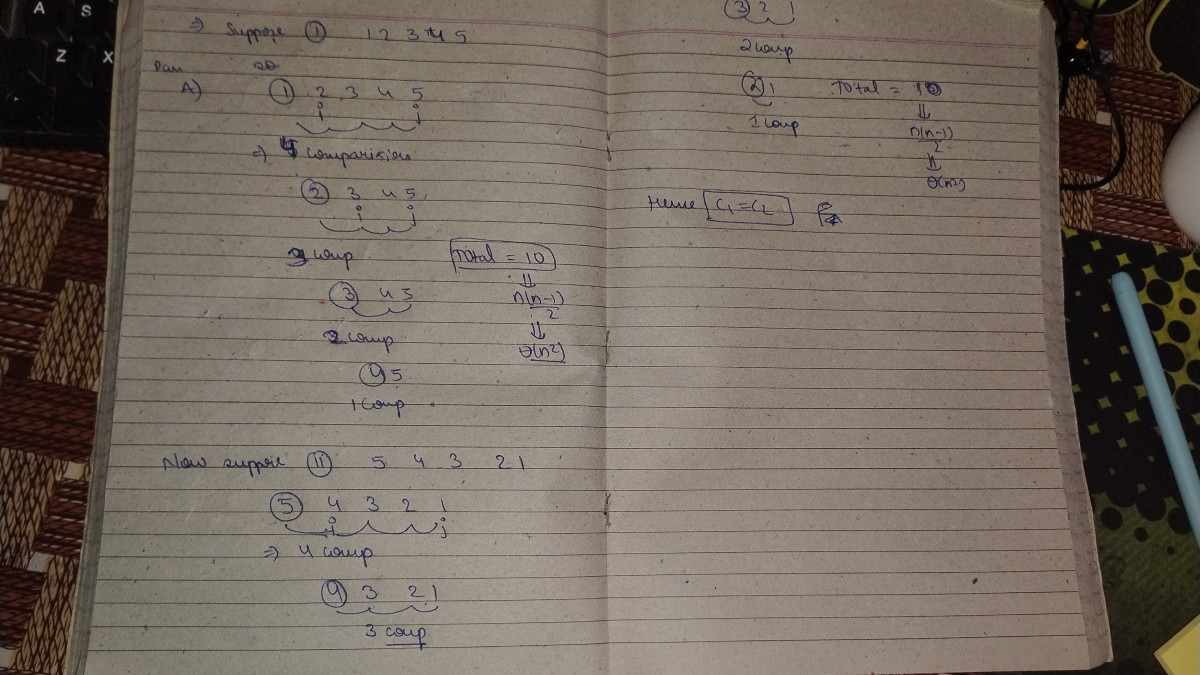 ⇒ Suppose ① 1 2 3 4 5
A) ① 2 3 4 5
i j
⇒ 4 comparision
② 3 4 5
i j
3 comp
Total = 10
⇓
③ 4 5
n(n-1)
2
2 comp
⇓
θ(n²)
④ 5
1 comp
Now suppose ⑪ 5 4 3 2 1
⑤ 4 3 2 1
i j
⇒ 4 comp
④ 3 2 1
3 comp
③ 2 1
2 comp
② 1
Total = 10
1 comp
⇓
n(n-1)
2
⇓
θ(n²)
Hence C₁ = C₂
A S
Z X